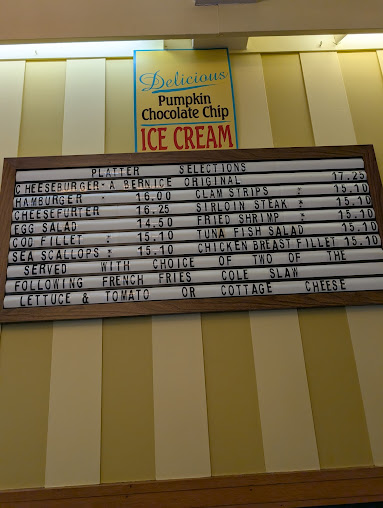 Delicious
Pumpkin
Chocolate Chip
ICE CREAM
PLATTER SELECTIONS
CHEESEBURGER-A BERNICE ORIGINAL 17.25
HAMBURGER " 16.00 CLAM STRIPS " 15.10
CHEESEFURTER 16.25 SIRLOIN STEAK " 15.10
EGG SALAD 14.50 FRIED SHRIMP " 15.10
COD FILLET " 15.10 TUNA FISH SALAD 15.10
SEA SCALLOPS " 15.10 CHICKEN BREAST FILLET 15.10
SERVED WITH CHOICE OF TWO OF THE
FOLLOWING FRENCH FRIES COLE SLAW
LETTUCE & TOMATO OR COTTAGE CHEESE